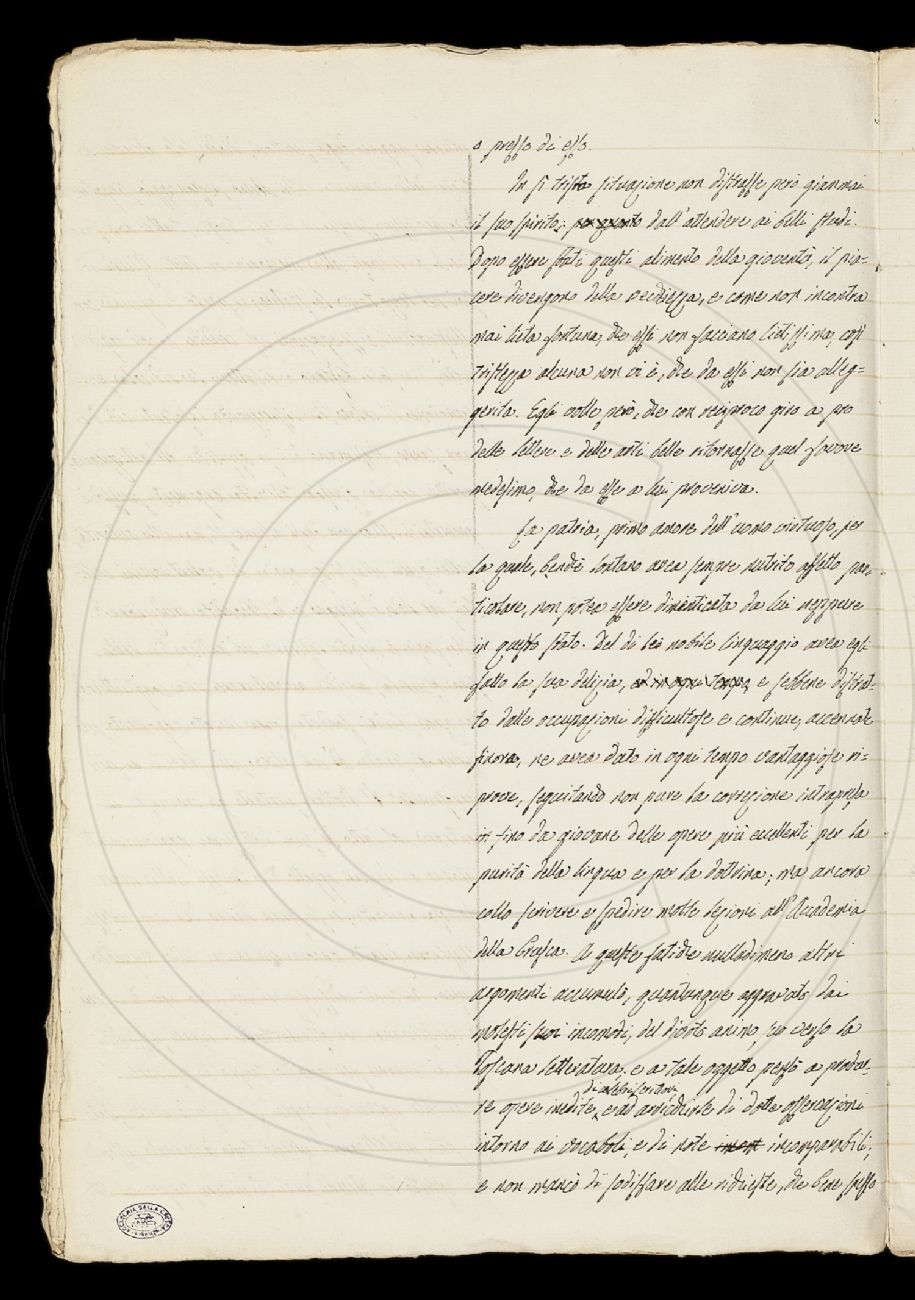 o presso di esso.
In sì trista situazione non distrasse però giammai
il suo spirito; per quanto dall'attendere ai belli studi.
Dopo essere stati questi alimento della gioventù, il pia=
cere divengono della vecchiezza, e come non incontra
mai lieta fortuna, che essi non facciano lietissima, così
tristezza alcuna non vi è, che da essi non sia alleg=
gerita. Egli volle però, che con reciproco giro a pro
delle lettere e delle arti belle ritornasse quel favore
medesimo, che da esse a lui proveniva.
La patria, primo amore dell'uomo virtuoso, per
la quale, benchè lontano avea sempre nutrito affetto par-
ticolare, non potea essere dimenticata da lui neppure
in questo stato. Del di lei nobile linguaggio avea egli
fatto la sua delizia, ed in ogni tempo, e sebbene distrat-
to dalle occupazioni difficultose e continue, accennate
finora, ne avea dato in ogni tempo vantaggiose ri=
prove, seguitando non pure la correzione intrapresa
in fino da giovane delle opere più eccellenti per la
purità della lingua e per la dottrina; ma ancora
collo scrivere e spedire molte lezioni all'Accademia
della Crusca. A queste fatiche nulladimeno altri
argomenti accumulò, quantunque aggravato dai
molesti suoi incomodi, del divoto animo, verso la
Toscana letteratura: e a tale oggetto pensò a produr-
di celebri scrittori
re opere inedite, e ad arricchirle di dotte osservazioni
intorno ai vocaboli, e di note incomparabili;
e non mancò di sodisfare alle richieste, che bene spesso
ACCADEMIA DELLA CRUSCA